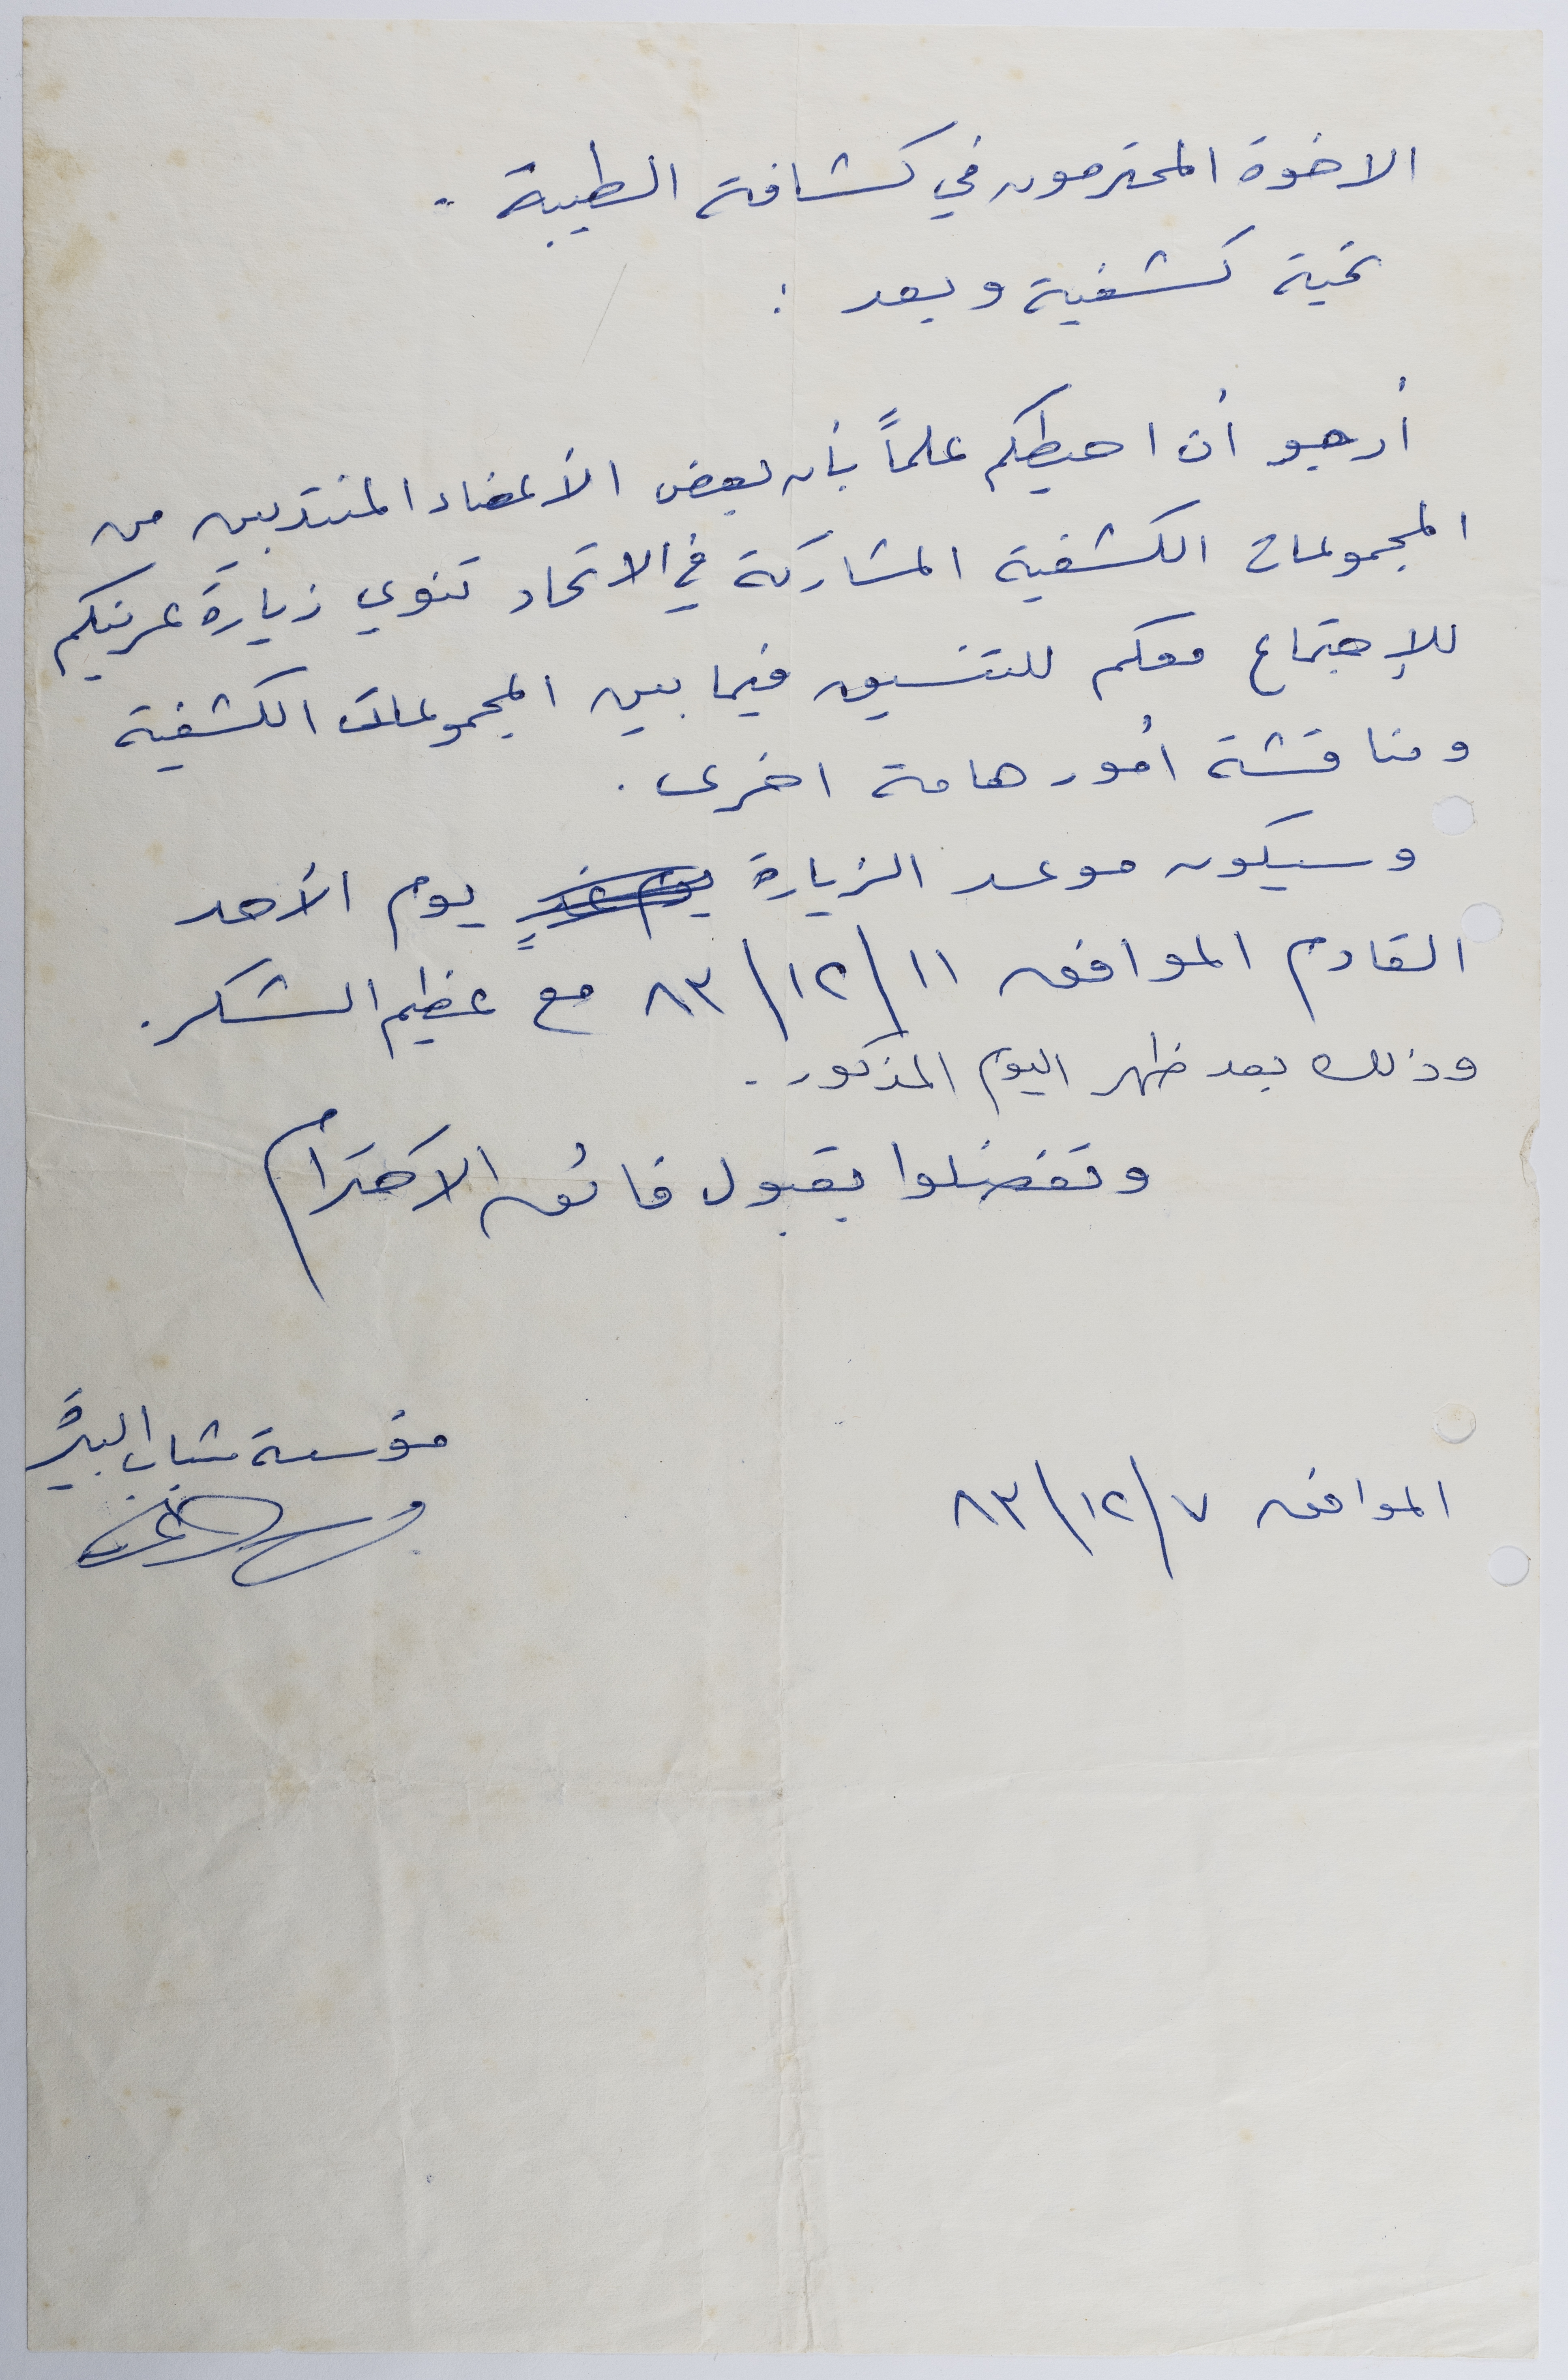 الاخوة المحترمون في كشافة الطيبة .
تحية كشفية وبعد :
أرجو أن احيطكم علماً بأن بعض الأعضاء المنتدبين من
المجموعات الكشفية المشاركة في الاتحاد تنوي زيارة عرينكم
للإجتماع معكم للتنسيق فيما بين المجموعات الكشفية
ومناقشة أمور هامة اخرى .
وسيكون موعد الزيارة يوم الأحد
القادم الموافق ١١/١٢/٨٣ مع عظيم الشكر .
وذلك بعد ظهر اليوم المذكور .
وتفضلوا بقبول فائق الاحترام
مؤسسة شباب البيرة
الموافق ٧/١٢/٨٣